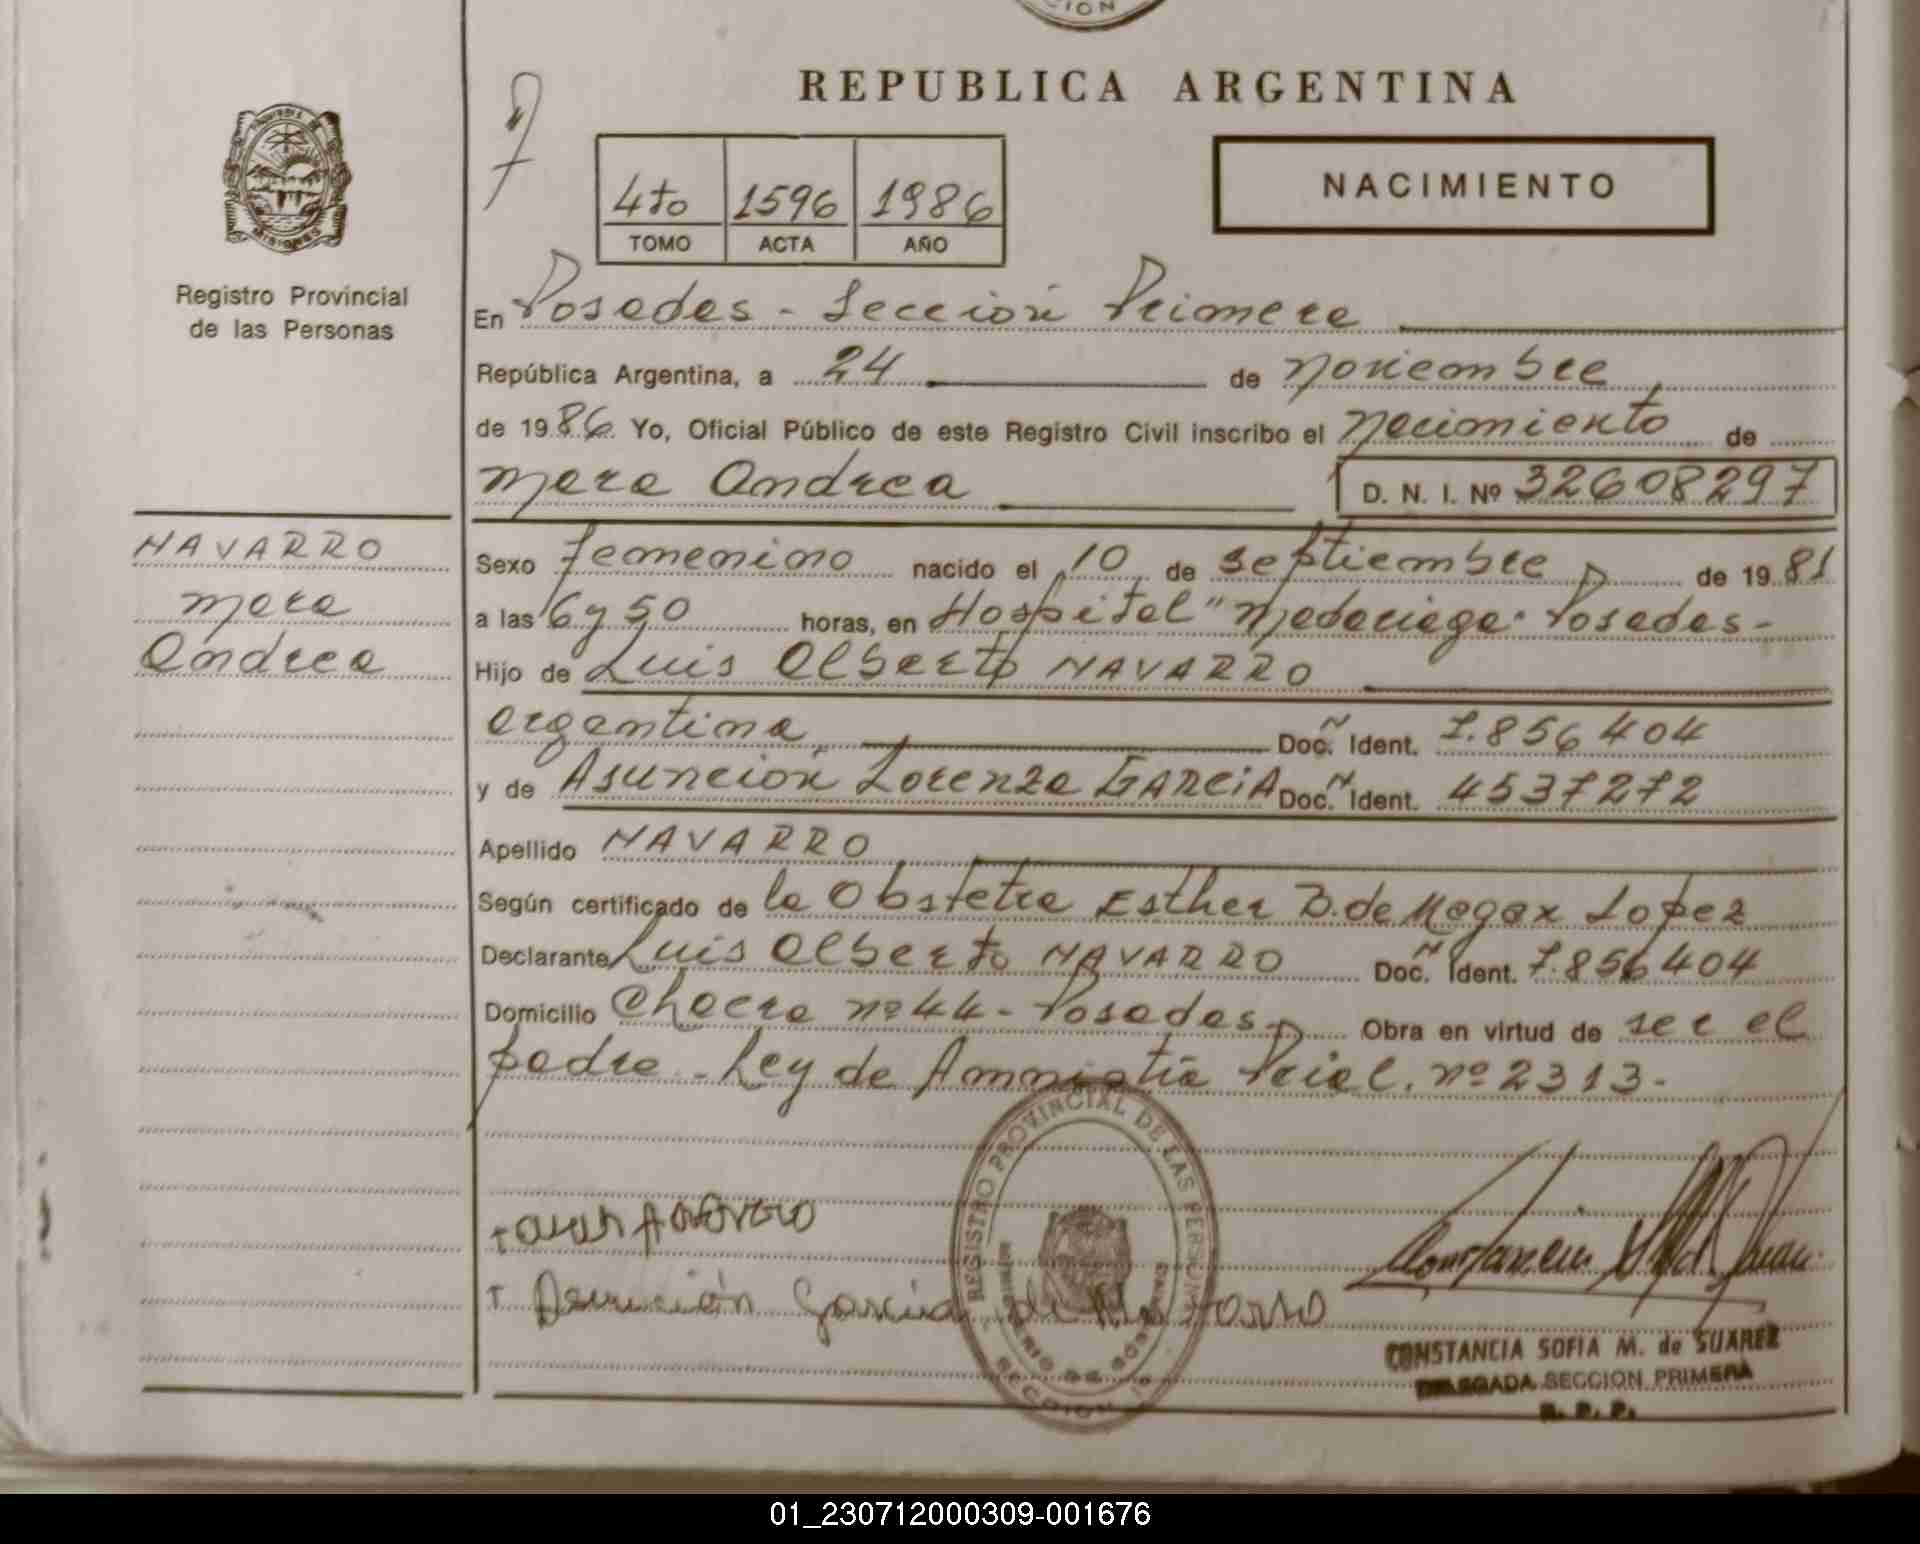 CION
REPUBLICA ARGENTINA
4to 1596 1986
TOMO ACTA AÑO
NACIMIENTO
MISIONES
Registro Provincial
de las Personas
En Posadas - Sección Primera
República Argentina, a 24 de noviembre
de 1986 Yo, Oficial Público de este Registro Civil inscribo el nacimiento de
Mara Andrea D. N. I. Nº 32608297
NAVARRO
Mara
Andrea
Sexo femenino nacido el 10 de septiembre de 1981
a las 6 y 50 horas, en Hospital "Madariaga" Posadas-
Hijo de Luis Alberto NAVARRO
argentina Doc. Ident. 7.856404
y de Asunción Lorenza GARCIA Doc. Ident. 4537272
Apellido NAVARRO
Según certificado de la Obstetra Esther D. de Lopez
Declarante Luis Alberto NAVARRO Doc. Ident. 7.856404
Domicilio Chacra nº 44 - Posadas Obra en virtud de ser el
padre - Ley de Amnistía Pcial. nº 2313-
Asunción Garcia de Navarro
REGISTRO PROVINCIAL DE LAS PERSONAS
MINISTERIO DE GOBIERNO
SECCION 1
CONSTANCIA SOFIA M. de SUAREZ
DELEGADA SECCION PRIMERA
R. P. P.
01_230712000309-001676